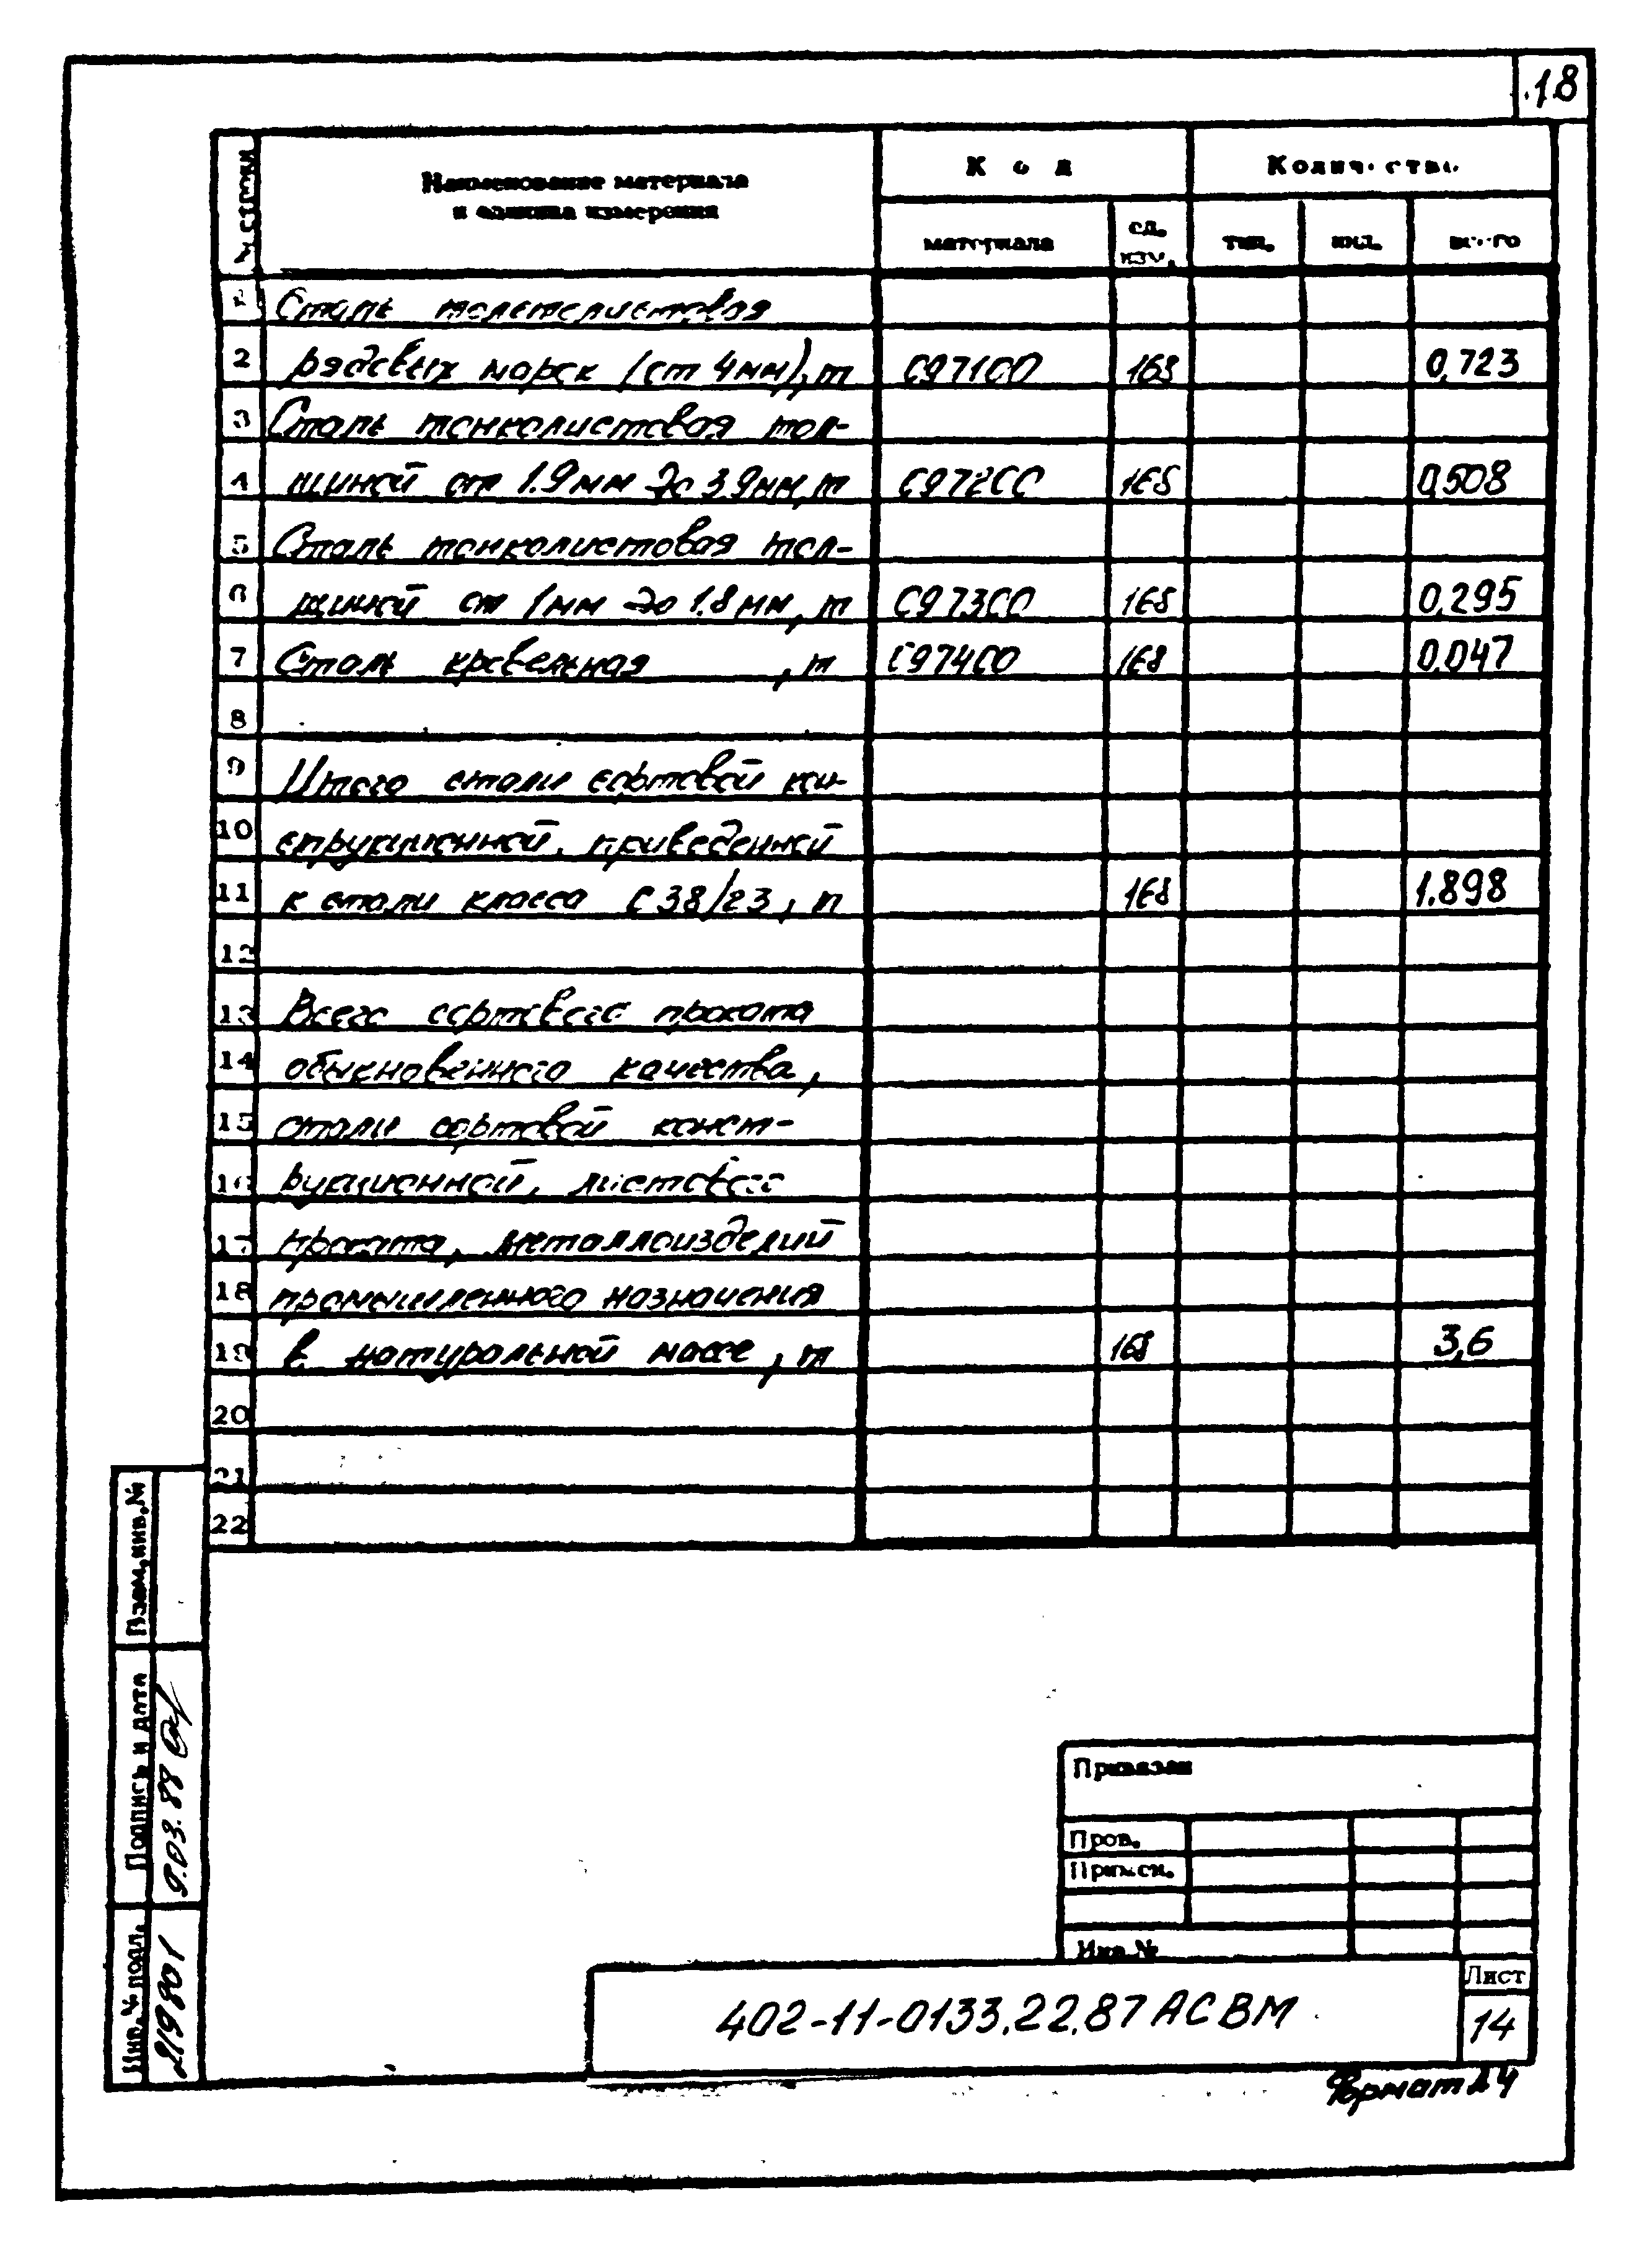 18
№ строки
Наименование материала
и единица измерения
Код
Количество
материала
ед.
изм.
тип.
инд.
всего
1 Сталь толстолистовая
2 рядовых марок (от 4мм), т 097100 168 0,723
3 Сталь тонколистовая тол-
4 щиной от 1.9мм до 3.9мм, т 097200 168 0,508
5 Сталь тонколистовая тол-
6 щиной от 1мм до 1.8мм, т 097300 168 0,295
7 Сталь кровельная , т 097400 168 0,047
8
9 Итого стали сортовой кон-
10 струкционной, приведенной
11 к стали класса С38/23, т 168 1.898
12
13 Всего сортового проката
14 обыкновенного качества,
15 стали сортовой конст-
16 рукционной, листового
17 проката, металлоизделий
18 промышленного назначения
19 в натуральной массе, т 168 3,6
20
21
22
Взам.инв.№
Подпись и дата
9.03.88
Инв.№ подл.
21980 1
Привязан
Пров.
Примен.
Инв.№
402-11-0133.22.87 АС ВМ
Лист
14
Формат А4